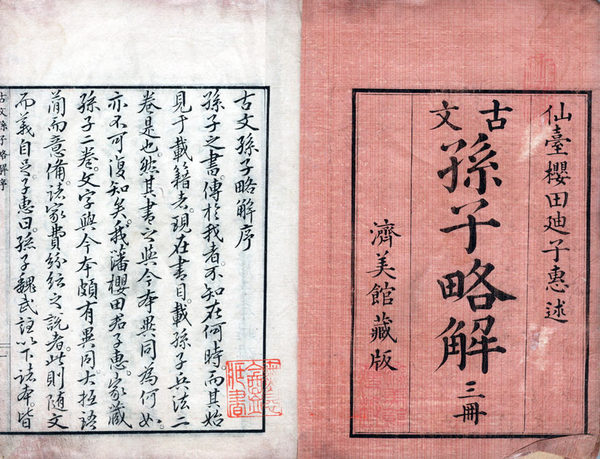 仙臺櫻田廸子惠述
古文
孫子略解 三冊
濟美館藏版
古文孫子略解序
孫子之書傳於我者不知在何時而其始
見于載籍者現在書目載孫子兵法二
卷是也然其書之與今本異同為何如
亦不可復知矣我藩櫻田君子惠家藏
孫子二卷文字與今本頗有異同大抵語
簡而意備諸家費紛紜之說者此則隨文
而義自見子惠曰孫子魏武註以下諸本皆
古文孫子略解序